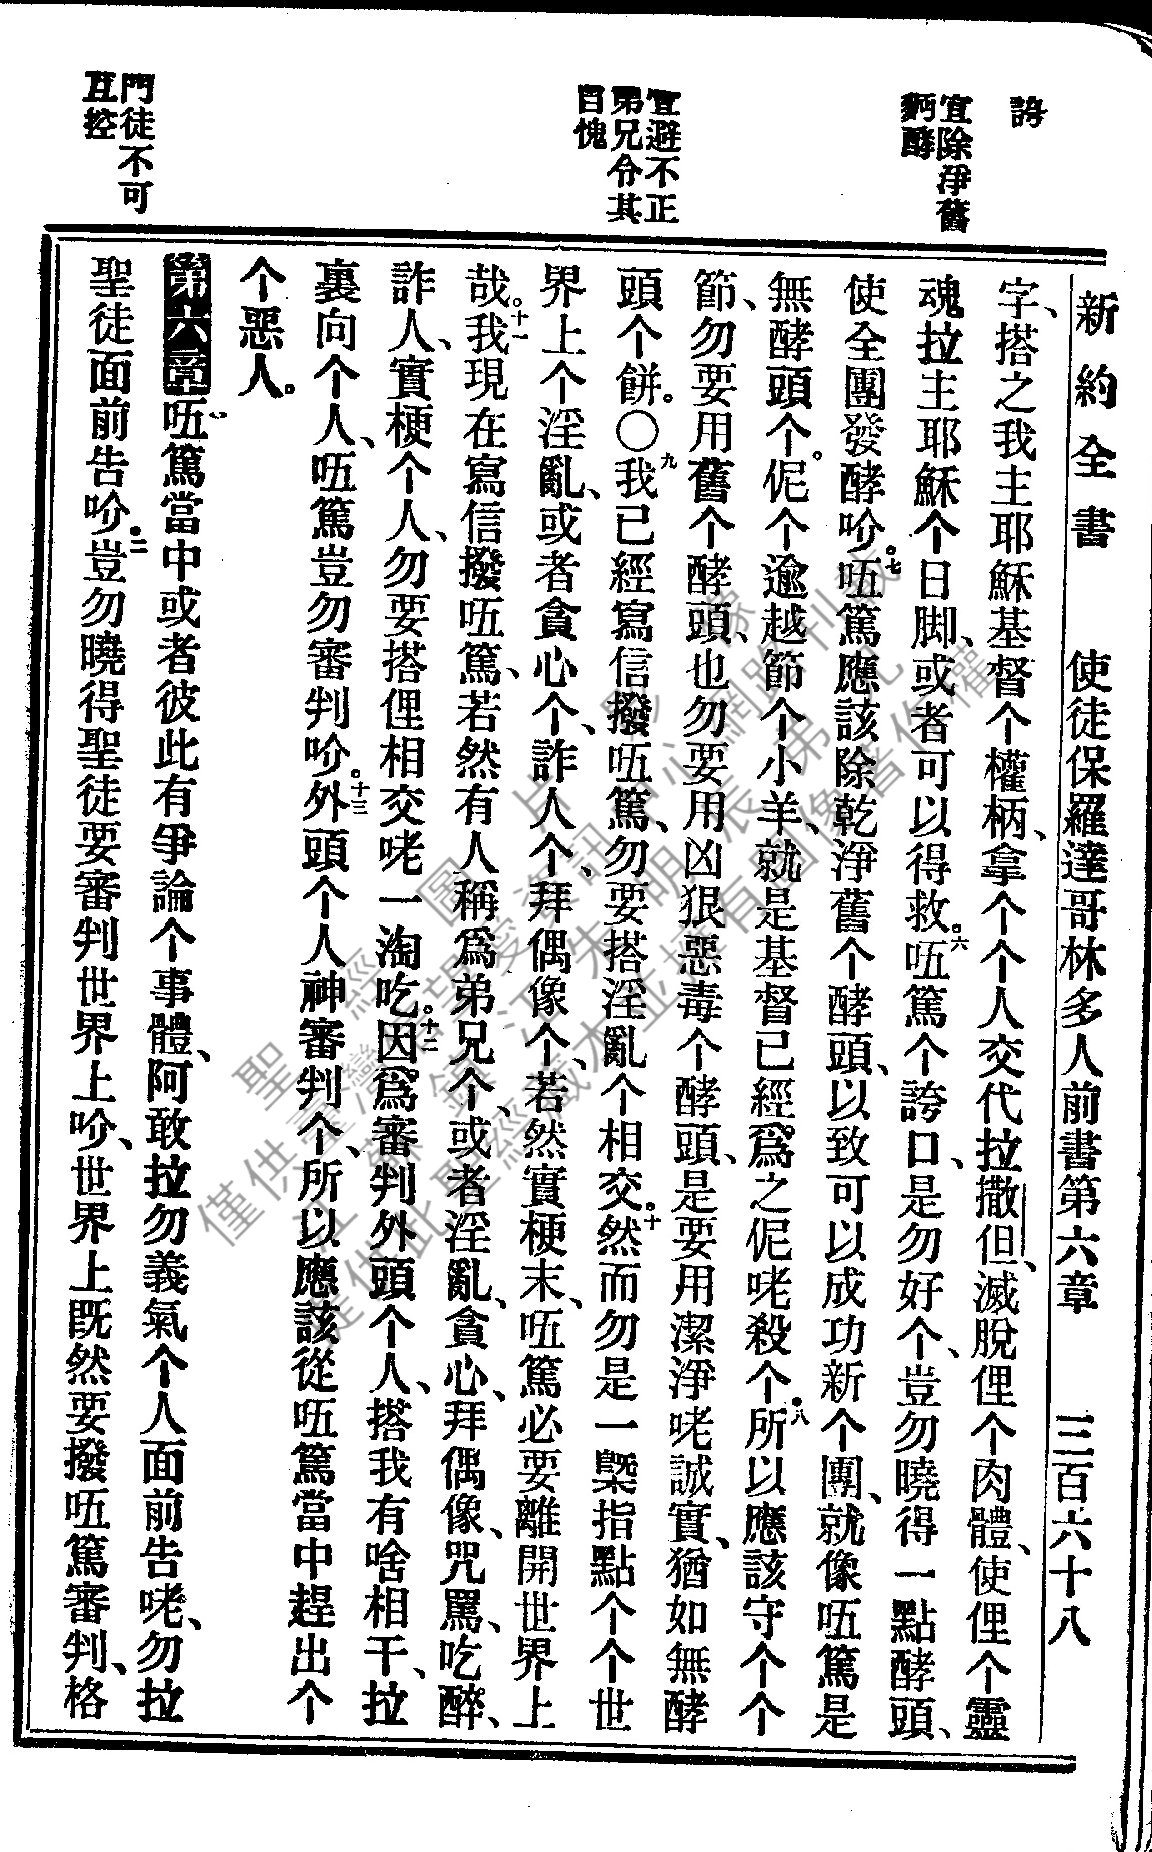 新約全書　使徒保羅達哥林多人前書第六章　三百六十八
宜除淨舊
麪酵
宜避不正
弟兄令其
自愧
門徒不可
互控
字、搭之我主耶穌基督个權柄、拿个个人交代拉撒但、滅脫俚个肉體、使俚个靈
魂拉主耶穌个日脚、或者可以得救。六㕶篤个誇口、是勿好个、豈勿曉得一點酵頭、
使全團發酵吤。七㕶篤應該除乾淨舊个酵頭、以致可以成功新个團、就像㕶篤是
無酵頭个。伲个逾越節个小羊、就是基督已經爲之伲咾殺个。八所以應該守个个
節、勿要用舊个酵頭、也勿要用凶狠惡毒个酵頭、是要用潔淨咾誠實、猶如無酵
頭个餅。〇九我已經寫信撥㕶篤、勿要搭淫亂个相交。十然而勿是一槩指點个个世
界上个淫亂、或者貪心个、詐人个、拜偶像个、若然實梗末、㕶篤必要離開世界上
哉。十一我現在寫信撥㕶篤、若然有人稱爲弟兄个、或者淫亂、貪心、拜偶像、咒罵、吃醉、
詐人、實梗个人、勿要搭俚相交咾一淘吃。十二因爲審判外頭个人、搭我有啥相干、拉
裏向个人、㕶篤豈勿審判吤。十三外頭个人神審判个、所以應該從㕶篤當中趕出个
个惡人。
第六章㕶篤當中或者彼此有爭論个事體、阿敢拉勿義氣个人面前告咾、勿拉
聖徒面前告吤。二豈勿曉得聖徒要審判世界上吤、世界上既然要撥㕶篤審判、格